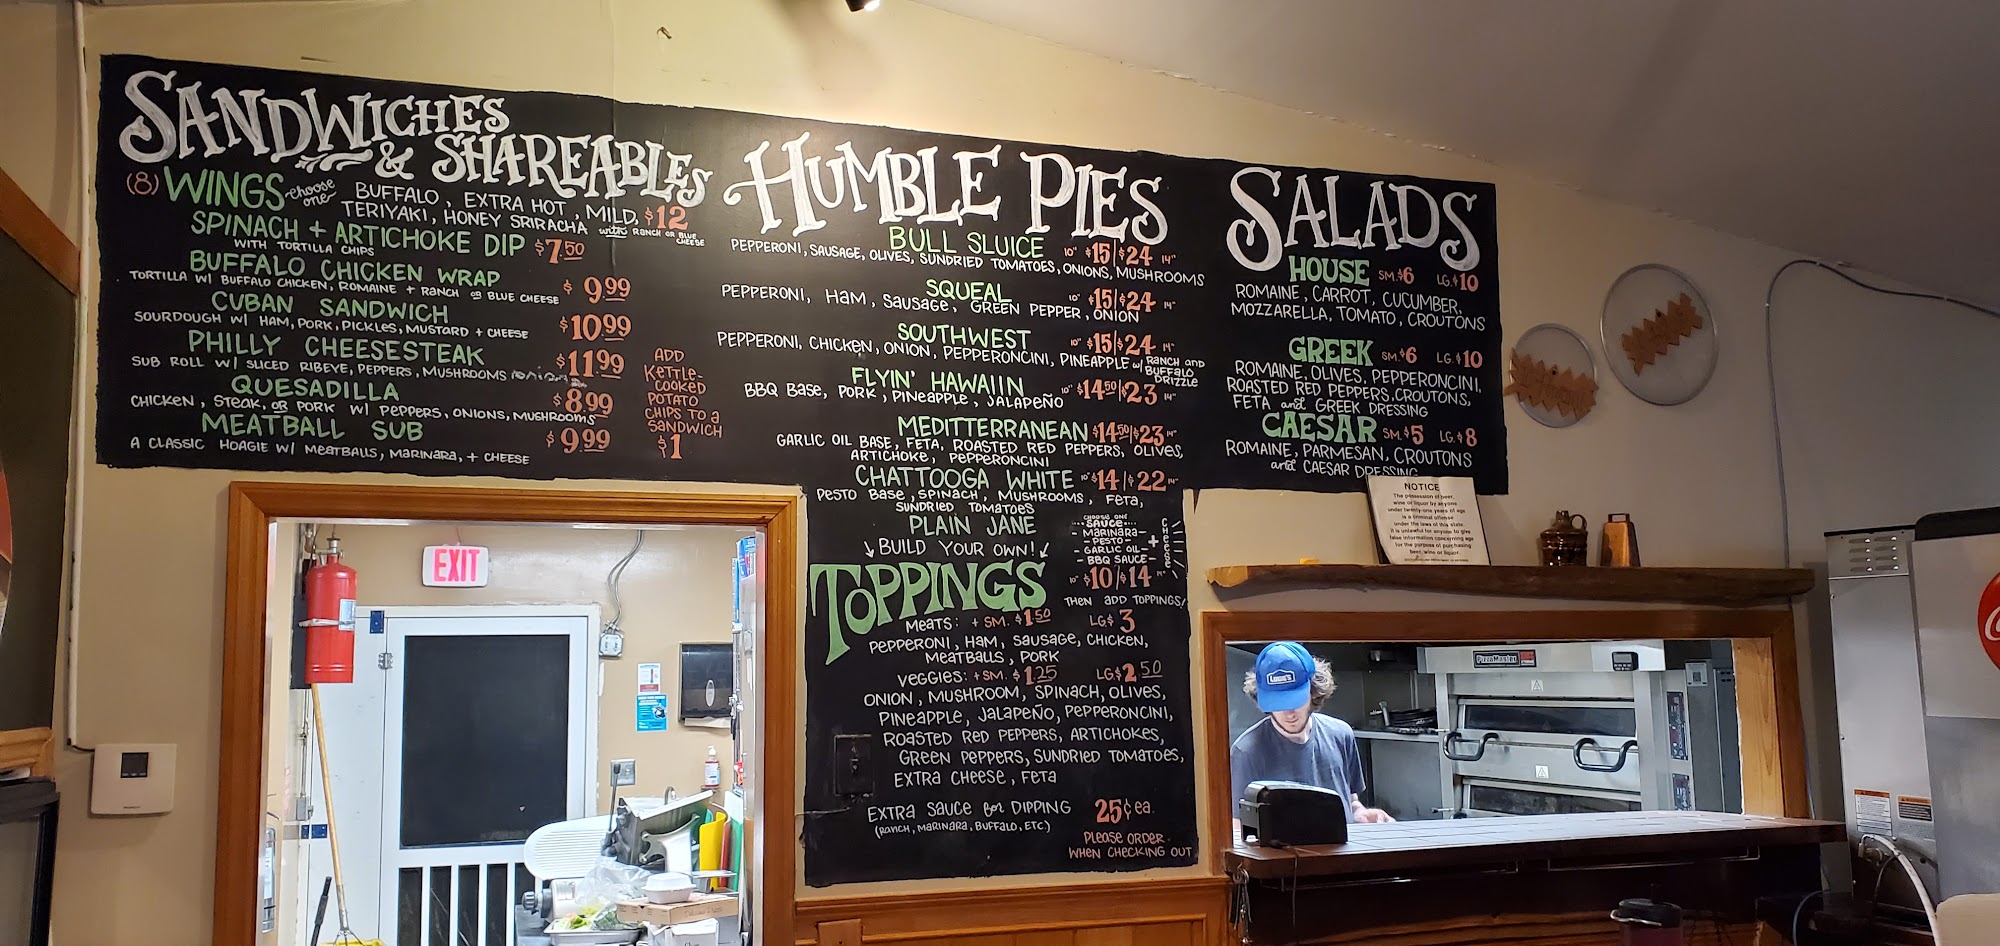 SANDWICHES
& SHAREABLES
(8) WINGS choose one BUFFALO, EXTRA HOT, MILD, $12
TERIYAKI, HONEY SRIRACHA with RANCH OR BLUE CHEESE
SPINACH + ARTICHOKE DIP $7.50
WITH TORTILLA CHIPS
BUFFALO CHICKEN WRAP $9.99
TORTILLA W/ BUFFALO CHICKEN, ROMAINE + RANCH OR BLUE CHEESE
CUBAN SANDWICH $10.99
SOURDOUGH W/ HAM, PORK, PICKLES, MUSTARD + CHEESE
PHILLY CHEESESTEAK $11.99
SUB ROLL W/ SLICED RIBEYE, PEPPERS, MUSHROOMS onions
QUESADILLA $8.99
CHICKEN, STEAK, OR PORK W/ PEPPERS, ONIONS, MUSHROOMS
MEATBALL SUB $9.99
A CLASSIC HOAGIE W/ MEATBALLS, MARINARA, + CHEESE
ADD
KETTLE-
COOKED
POTATO
CHIPS TO a
SANDWICH
$1
HUMBLE PIES
BULL SLUICE 10" $15/$24 14"
PEPPERONI, SAUSAGE, OLIVES, SUNDRIED TOMATOES, ONIONS, MUSHROOMS
SQUEAL 10" $15/$24 14"
PEPPERONI, HAM, SAUSAGE, GREEN PEPPER, ONION
SOUTHWEST 10" $15/$24 14"
PEPPERONI, CHICKEN, ONION, PEPPERONCINI, PINEAPPLE w/ RANCH and BUFFALO DRIZZLE
FLYIN' HAWAIIN 10" $14.50/$23 14"
BBQ BASE, PORK, PINEAPPLE, JALAPEÑO
MEDITTERRANEAN $14.50/$23 14"
GARLIC OIL BASE, FETA, ROASTED RED PEPPERS, OLIVES,
ARTICHOKE, PEPPERONCINI
CHATTOOGA WHITE 10" $14/$22 14"
PESTO BASE, SPINACH, MUSHROOMS, FETA,
SUNDRIED TOMATOES
PLAIN JANE
BUILD YOUR OWN!
CHOOSE ONE
SAUCE
- MARINARA -
- PESTO -
- GARLIC OIL -
- BBQ SAUCE -
+ CHEESE
10" $10/$14 14"
THEN ADD TOPPINGS!
TOPPINGS
MEATS: + SM. $1.50 LG $3
PEPPERONI, HAM, SAUSAGE, CHICKEN,
MEATBALLS, PORK
VEGGIES: + SM. $1.25 LG $2.50
ONION, MUSHROOM, SPINACH, OLIVES,
PINEAPPLE, JALAPEÑO, PEPPERONCINI,
ROASTED RED PEPPERS, ARTICHOKES,
GREEN PEPPERS, SUNDRIED TOMATOES,
EXTRA CHEESE, FETA
EXTRA SAUCE for DIPPING 25¢ ea.
(RANCH, MARINARA, BUFFALO, ETC.)
PLEASE ORDER
WHEN CHECKING OUT
SALADS
HOUSE SM. $6 LG. $10
ROMAINE, CARROT, CUCUMBER,
MOZZARELLA, TOMATO, CROUTONS
GREEK SM. $6 LG. $10
ROMAINE, OLIVES, PEPPERONCINI,
ROASTED RED PEPPERS, CROUTONS,
FETA and GREEK DRESSING
CAESAR SM. $5 LG. $8
ROMAINE, PARMESAN, CROUTONS
and CAESAR DRESSING
NOTICE
The possession of beer,
wine or liquor by anyone
under twenty-one years of age
is a criminal offense
under the laws of this state.
It is unlawful for anyone to give
false information concerning age
for the purpose of purchasing
beer, wine or liquor.
EXIT
PizzaMaster